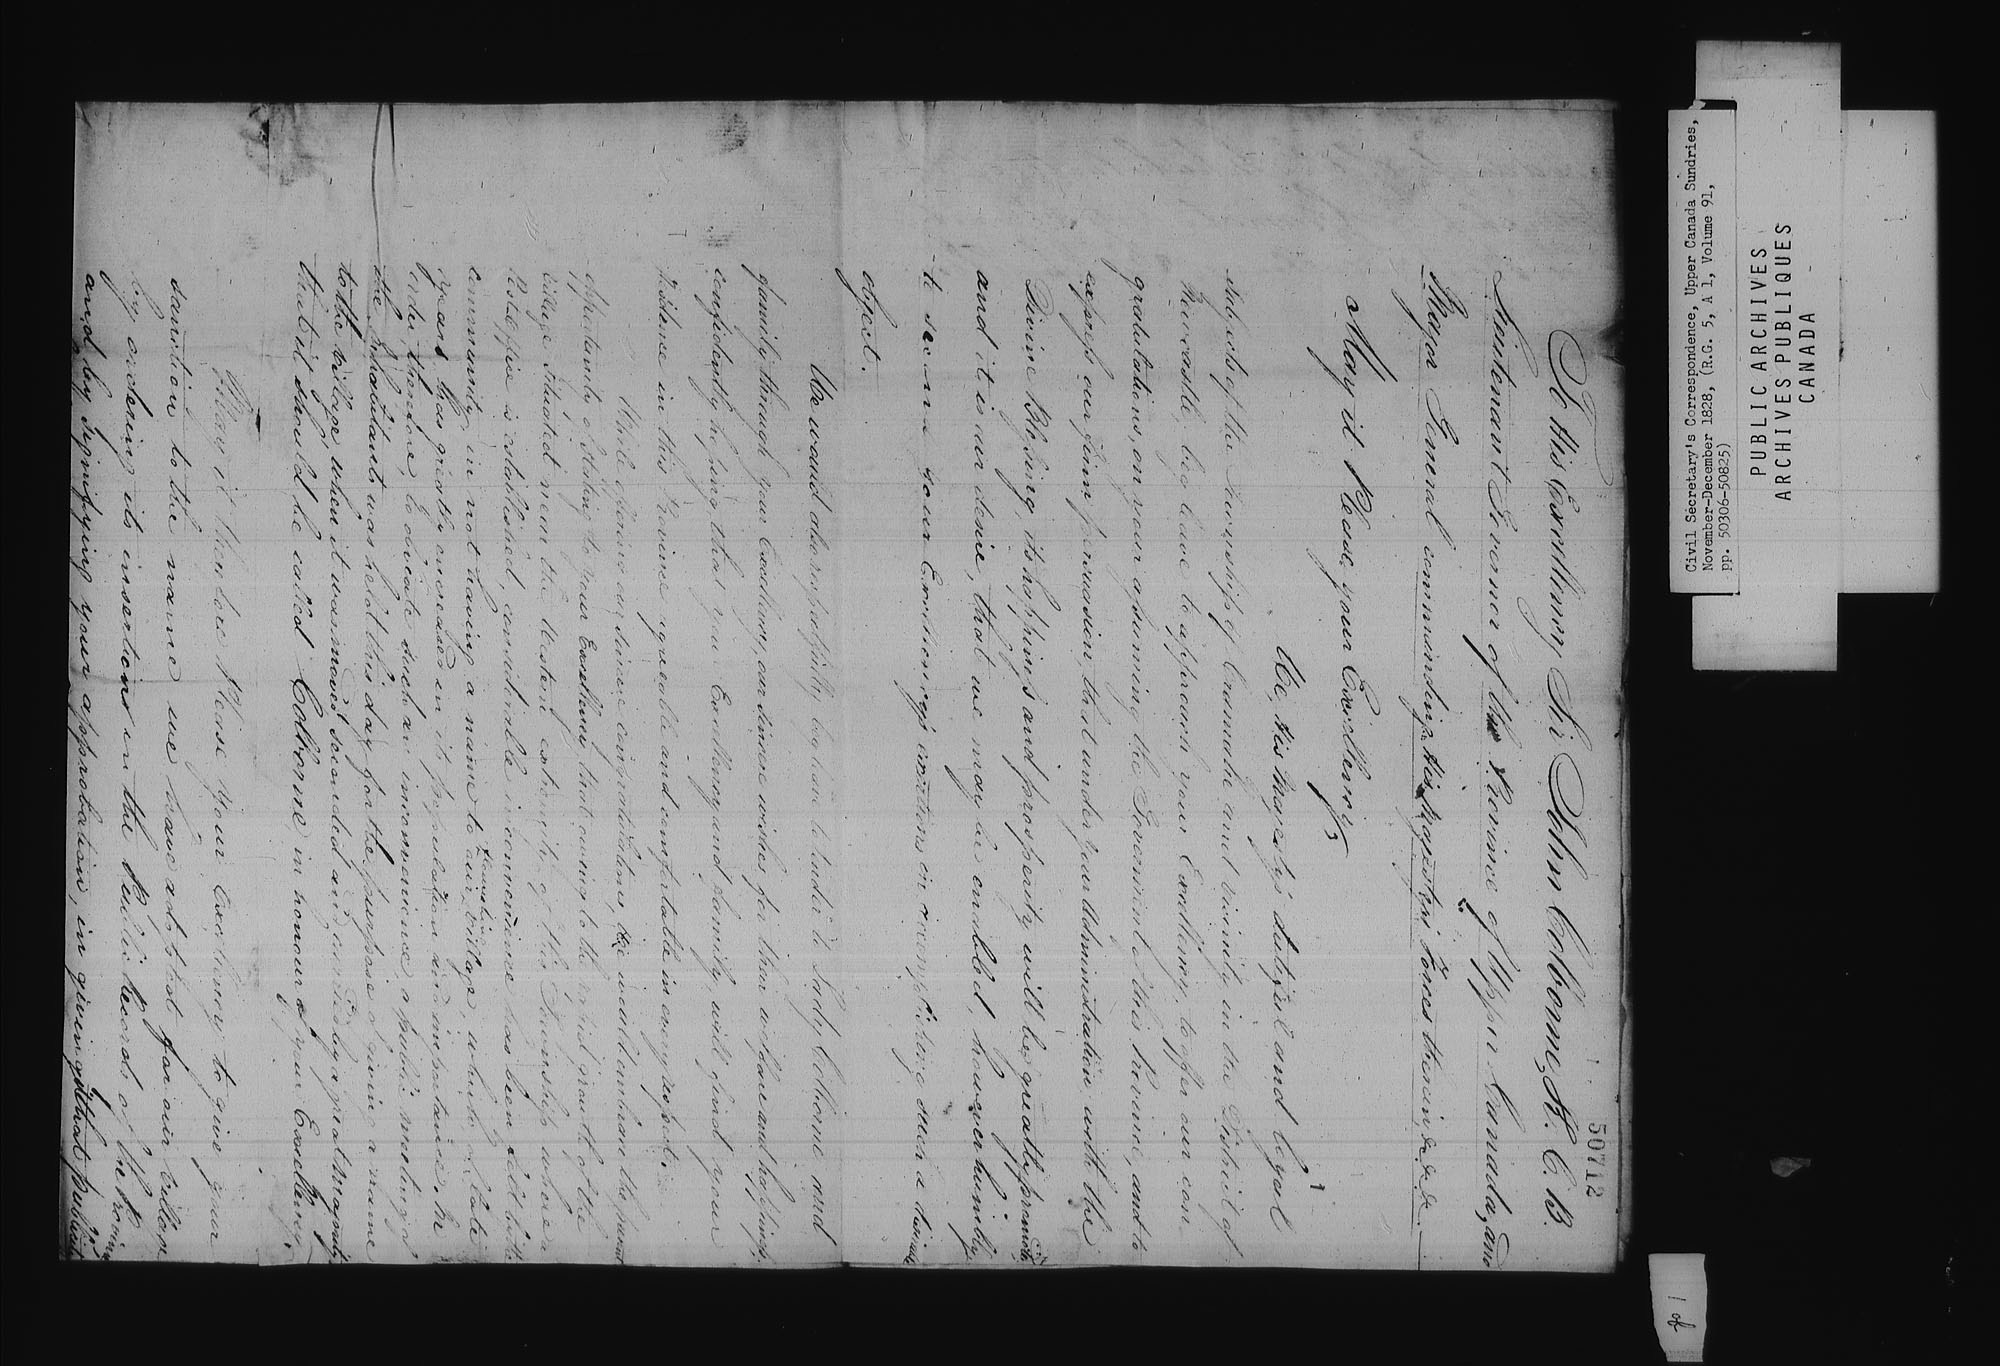 50712
To His Excellency Sir John Colborne, K. C. B.
Lieutenant Governor of the Province of Upper Canada, and
Major General commanding His Majesty's Forces therein, &c &c &c.
May it Please your Excellency,
We, His Majesty's dutiful and loyal
subjects of the Township of Cramahe and vicinity in the District of
Newcastle, beg leave to approach your Excellency, to offer our con-
gratulations, on your assuming the Government of this Province, and to
express our firm persuasion, that under your Administration, with the
Divine Blessing, its happiness and prosperity will be greatly promoted
and it is our desire, that we may be enabled, however humbly,
to second your Excellency's exertions in accomplishing such a desirable
object.
We would also respectfully beg leave to tender to Lady Colborne and
family, through your Excellency, our sincere wishes for their welfare and happiness,
confidently hoping that your Excellency and family, will find your
residence in this Province agreeable and comfortable in every respect.
While offering our sincere congratulations, we would embrace this favourable
opportunity of stating to your Excellency that owing to the rapid growth of the
village situated near the Western extremity of this Township where a
Post Office is established, considerable inconvenience has been felt by the
community, in not having a name to our flourishing village, which of late
years, has greatly increased in its population and importance. In
order, therefore, to obviate such an inconvenience, a public meeting of
the Inhabitants was held this day for the purpose of giving a name
to the village when it was moved, seconded and carried by a great majority
that it should be called Colborne, in honour of your Excellency.
May it therefore Please your Excellency to give your
sanction to the name we have adopted for our village
by ordering its insertion in the Public Records of the Province
and by signifying your approbation, in giving that publicity
Civil Secretary's Correspondence, Upper Canada Sundries,
November-December 1828, (R.G. 5, A 1, Volume 91,
pp. 50306-50825)
PUBLIC ARCHIVES
ARCHIVES PUBLIQUES
CANADA
1 of